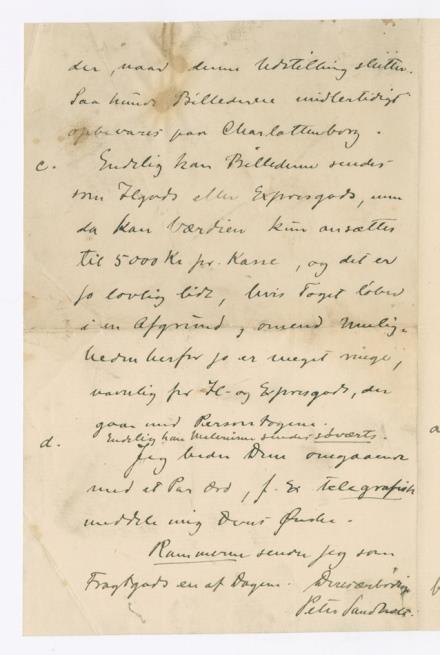 der, naar denne Udstilling slutter.
Saa kunde Billederne midlertidigt
opbevares paa Charlottenborg.
c. Endelig kan Billederne sendes
som Ilgods eller Expresgods, men
da kan Værdien kun ansættes
til 5000 Kr pr. Kasse, og det er
jo lovlig lidt, hvis Toget løber
i en Afgrund, omend Mulig-
heden herfor jo er meget ringe,
navnlig for Il- og Expresgods, der
gaar med Persontogene.
d. Endelig kan Malerierne sendes søværts.
Jeg beder Dem omgaaende
med et Par Ord, f. Ex telegrafisk
meddele mig Deres Ønske.
Rammerne sender jeg som
Fragtgods en af Dagene. Deres ærbødige
Peter
a
b